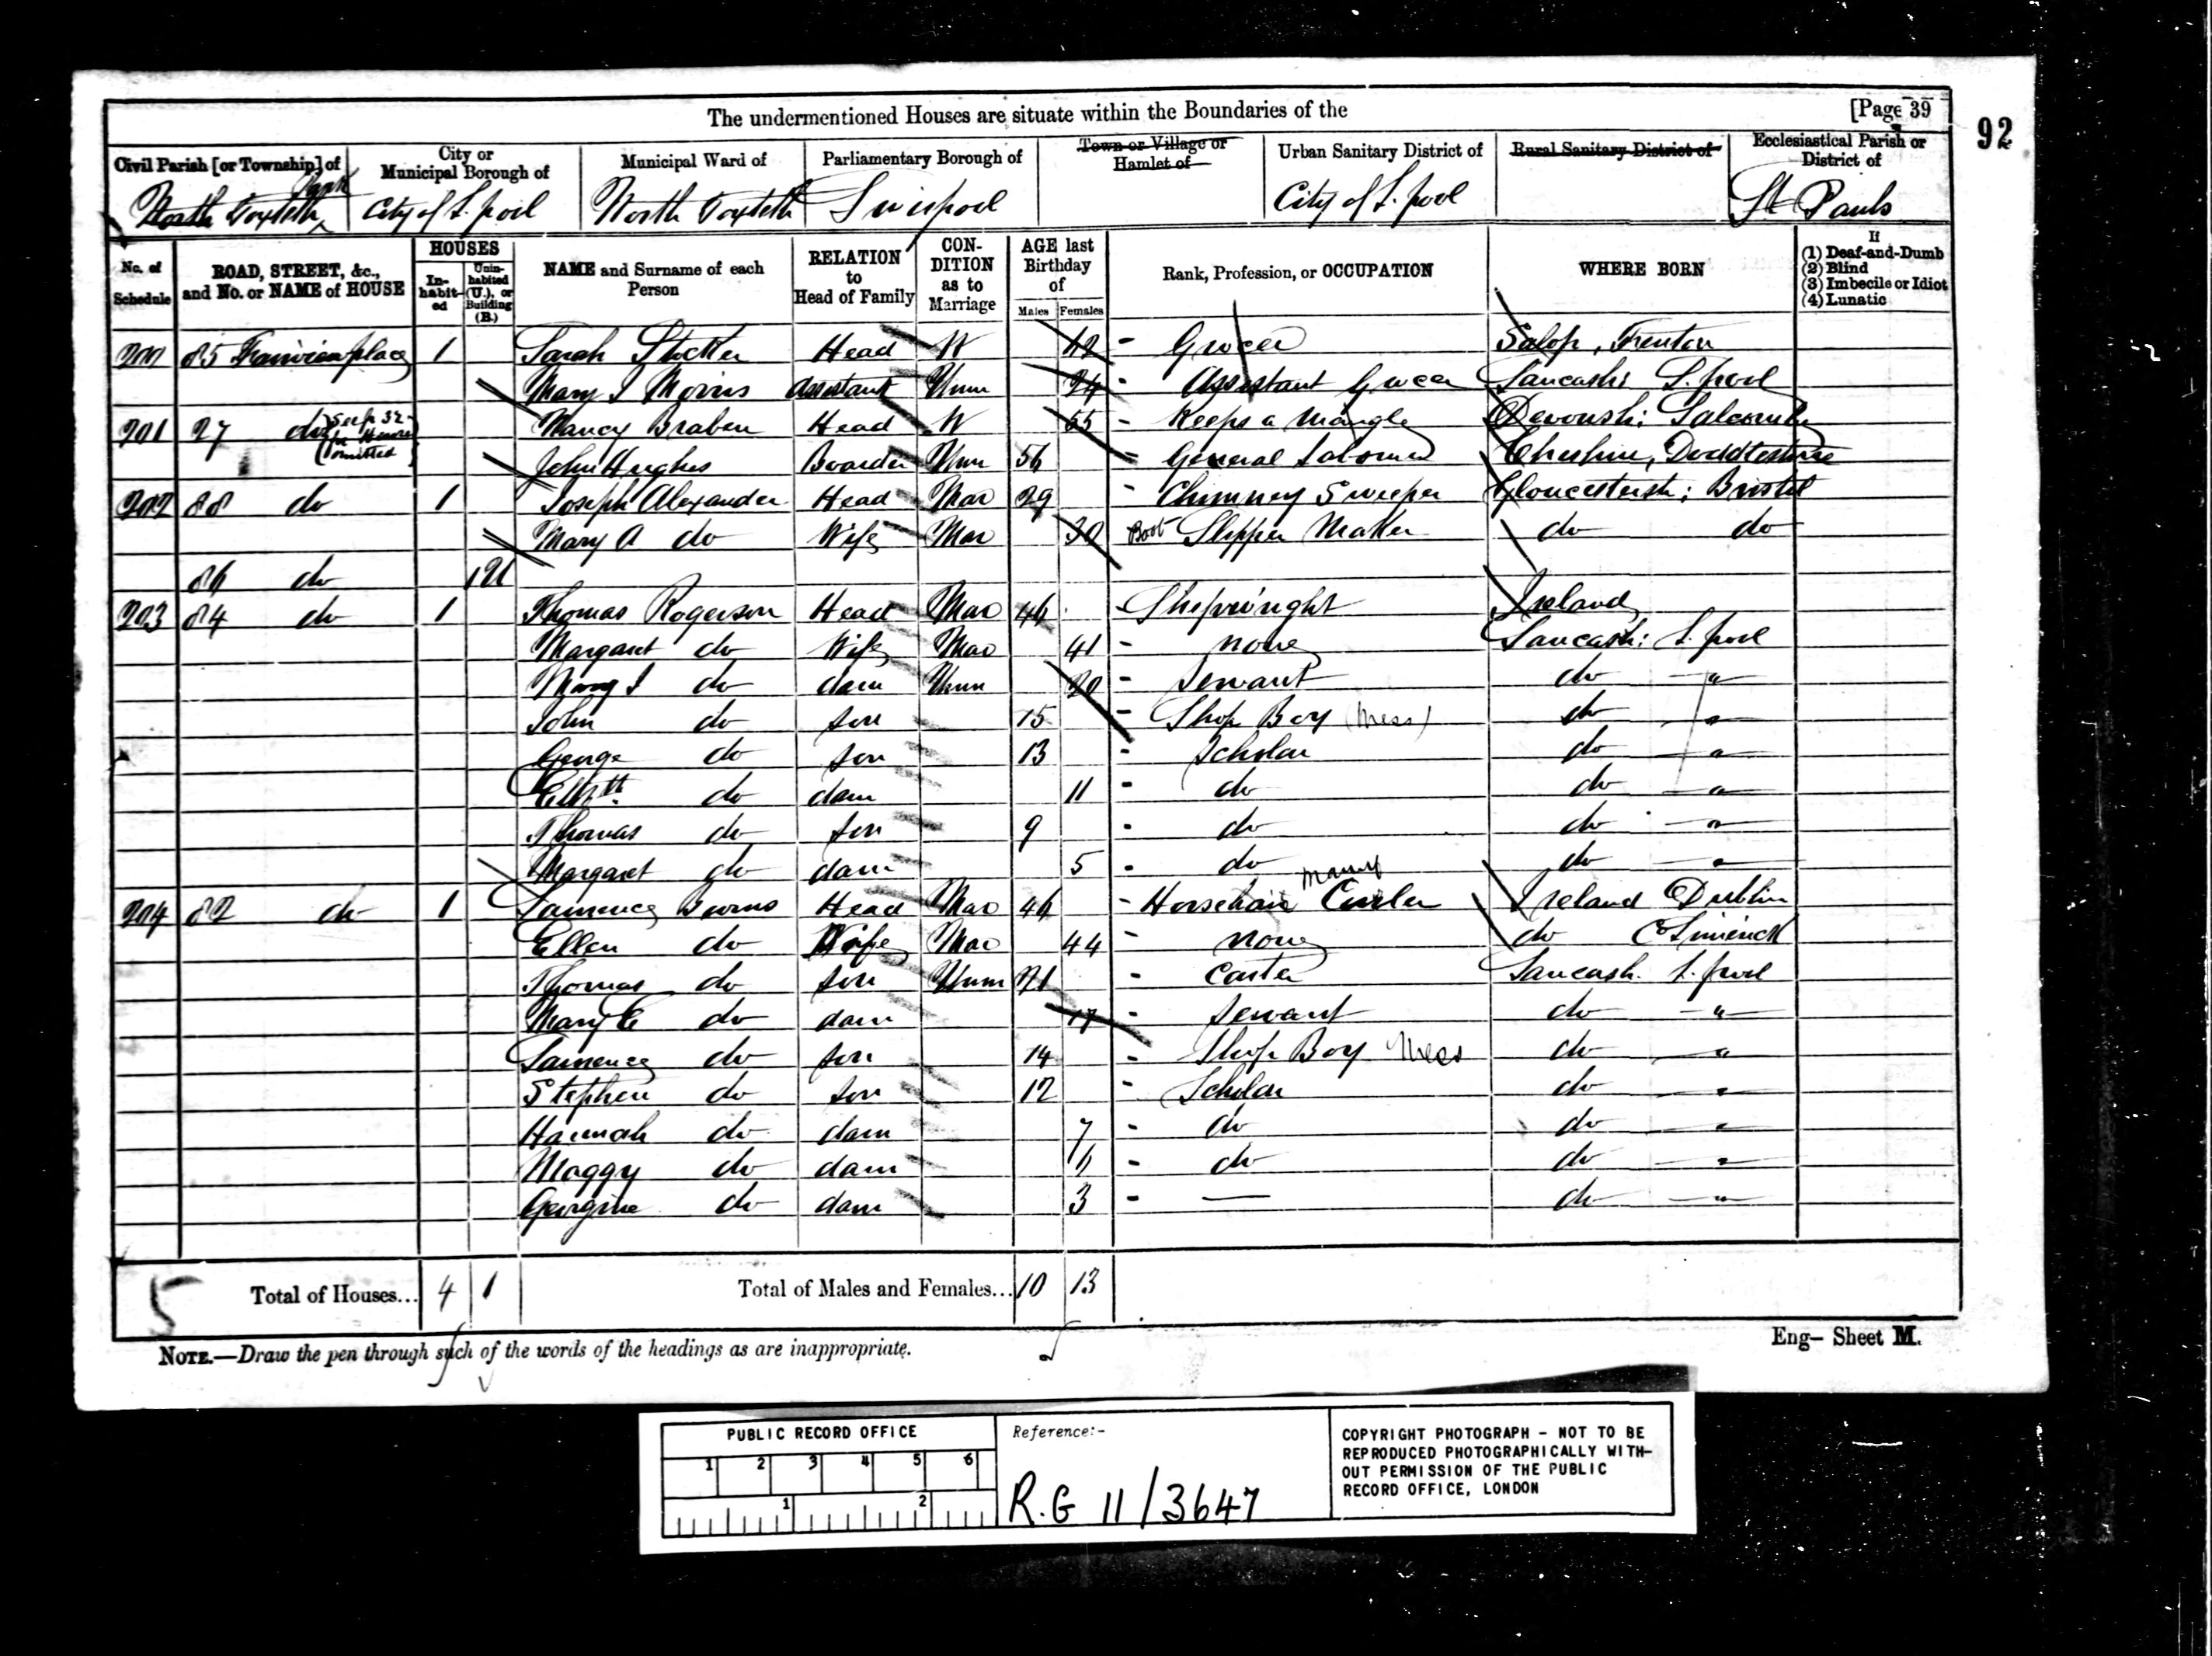 The undermentioned Houses are situate within the Boundaries of the
[Page 39
92
Civil Parish [or Township] of
City or Municipal Borough of
Municipal Ward of
Parliamentary Borough of
Town or Village or Hamlet of
Urban Sanitary District of
Rural Sanitary District of
Ecclesiastical Parish or District of
North Toxteth Park
City of L.pool
North Toxteth
Liverpool
City of L.pool
St Pauls
No. of Schedule
ROAD, STREET, &c., and No. or NAME of HOUSE
HOUSES
In-habit-ed
Unin-habited (U.), or Building (B.)
NAME and Surname of each Person
RELATION to Head of Family
CON-DITION as to Marriage
AGE last Birthday of
Males Females
Rank, Profession, or OCCUPATION
WHERE BORN
If
(1) Deaf-and-Dumb
(2) Blind
(3) Imbecile or Idiot
(4) Lunatic
200 85 place 1 Sarah Head W 42 - Grocer Salop,
Mary J Morris Assistant Unm 24 - Assistant Grocer Lancash: L.pool
201 27 do Nancy Braben Head W 55 - Keeps a Mangle Devonsh: Salcombe
omitted
John Hughes Boarder Unm 56 - General Labourer Cheshire,
202 88 do 1 Joseph Alexander Head Mar 29 - Chimney Sweeper Gloucestersh: Bristol
Mary A do Wife Mar 30 Boot Slipper Maker do do
86 do 1U
203 84 do 1 Thomas Rogerson Head Mar 46 - Shipwright Ireland
Margaret do Wife Mar 41 - none Lancash: L.pool
Mary J do daur Unm 20 - Servant do "
John do son 15 - Shop Boy (Mess) do "
George do son 13 - Scholar do "
Elizth do daur 11 - do do "
Thomas do son 9 - do do "
Margaret do daur 5 - do do "
204 82 do 1 Lawrence Burns Head Mar 46 - Horsehair Curler Manuf Ireland Dublin
Ellen do Wife Mar 44 - none do Co Limerick
Thomas do son Unm 21 - Carter Lancash. L.pool
Mary E do daur 17 - Servant do "
Lawrence do son 14 - Shop Boy Mess do "
Stephen do son 12 - Scholar do "
Hannah do daur 7 - do do "
Maggy do daur 6 - do do "
Georgine do daur 3 - — do "
5 Total of Houses... 4 1 Total of Males and Females... 10 13
NOTE.—Draw the pen through such of the words of the headings as are inappropriate.
Eng– Sheet M.
PUBLIC RECORD OFFICE
1 2 3 4 5 6
1 2
Reference:-
R.G 11/3647
COPYRIGHT PHOTOGRAPH - NOT TO BE
REPRODUCED PHOTOGRAPHICALLY WITH-
OUT PERMISSION OF THE PUBLIC
RECORD OFFICE, LONDON